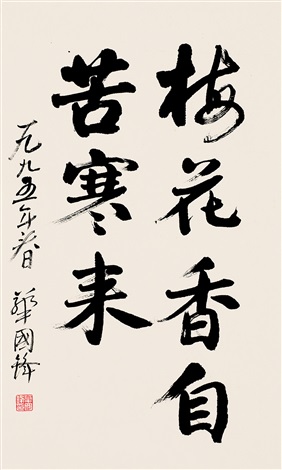 梅花香自
苦寒来
一九九五年春 华國锋